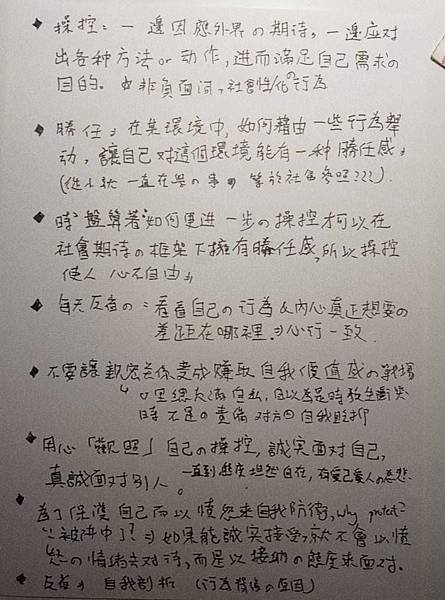 ◆ 操控：一邊因應外界の期待，一邊应对
出各种方法 or 动作，进而滿足自己需求の
目的。非负面词，社會性/化の行为
◆ 勝任 → 在某環境中，如何藉由一些行為舉
动，讓自己对這個環境能有一种勝任感。
(從小就一直在學の事 等於社會參照???)
◆ 時"盤算著"如何更进一步の操控才可以在
社會期待の框架下擁有勝任感，所以操控
使人心不自由
◆ 每天反省の：看看自己の行為&內心真正想要の
差距在哪裡. → 心行一致.
◆ 不要讓親密关係变成賺取自我價值感の戰場
時不足の責備对方の自我
◆ 用心「觀照」自己の操控，誠実面对自己，
真誠面对别人。一直到態度坦然自在，有愛己愛人の慈悲.
◆ 為了保護自己而以憤怒來自我防衛，why protect?
"被說中了?" → 如果能誠実接受，就不會以憤
怒の情緒去对待，而是以接納の態度來面对.
◆ 反省 → 自我剖析 (行為背後の原因)